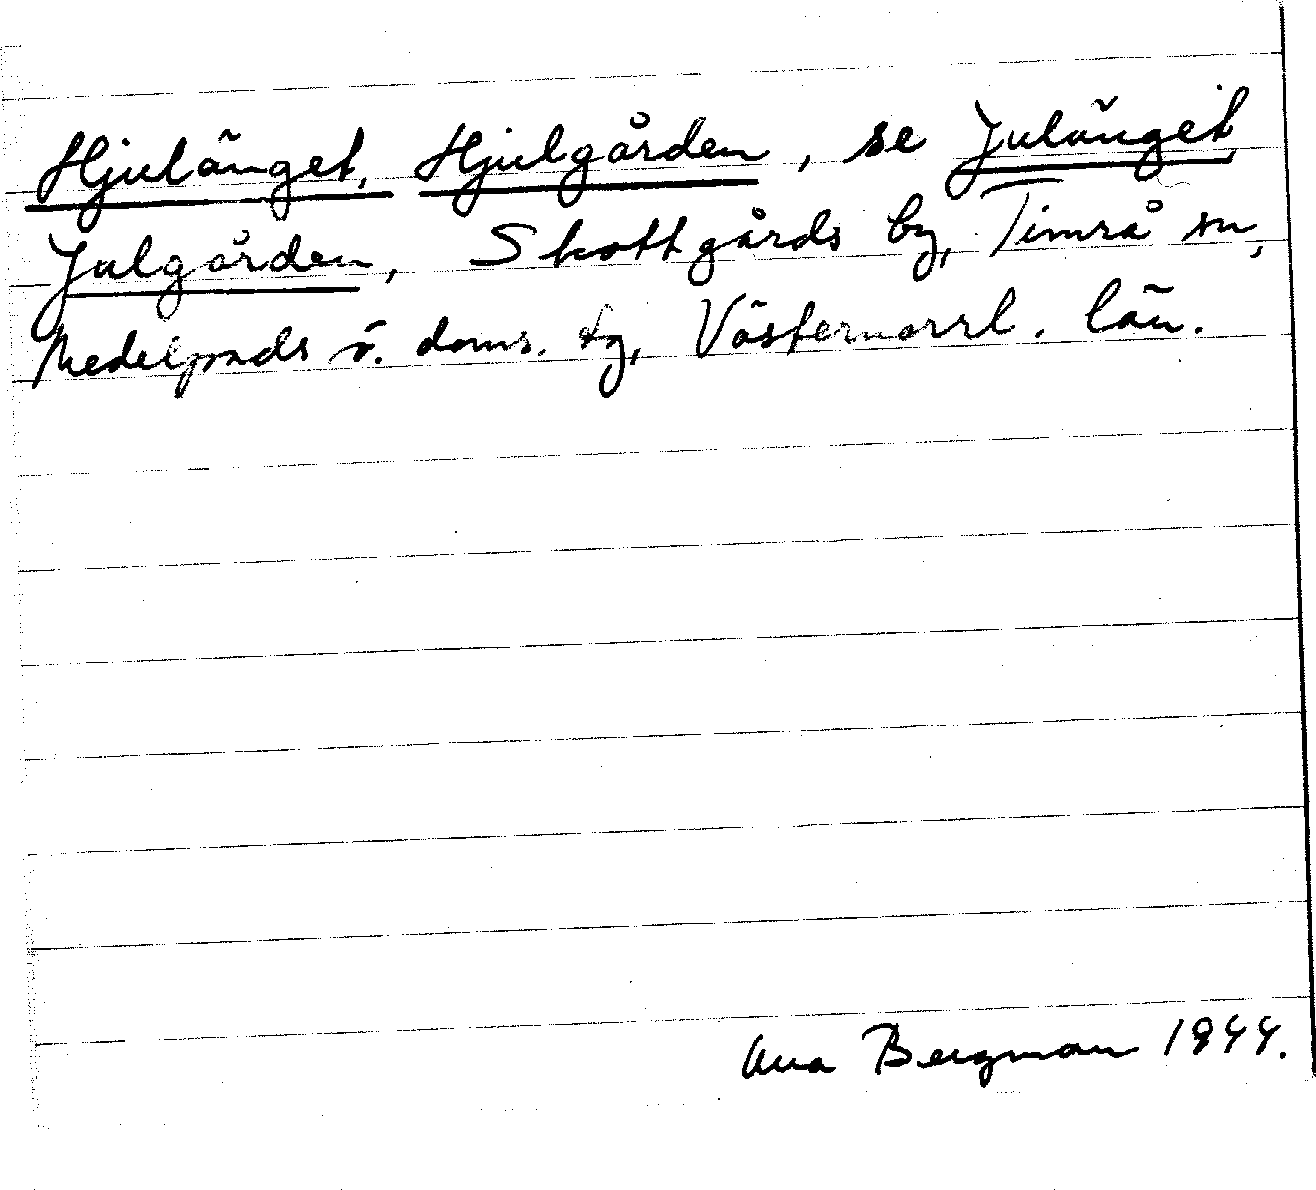 Hjulänget, Hjulgården, se Julänget,
Julgården, Skottgårds by, Timrå sn,
Medelpads ö. doms. tg, Västernorrl. län.
Bergman 1944.